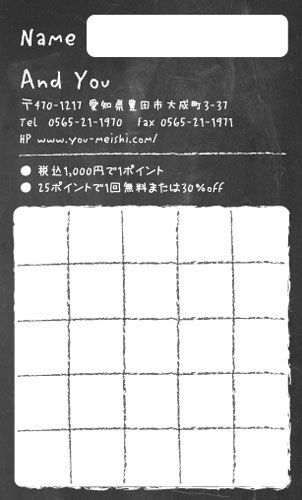 Name
And You
〒470-1217 愛知県豊田市大成町3-37
Tel 0565-21-1970 Fax 0565-21-1971
HP www.you-meishi.com/
● 税込1,000円で1ポイント
● 25ポイントで1回無料または30%off